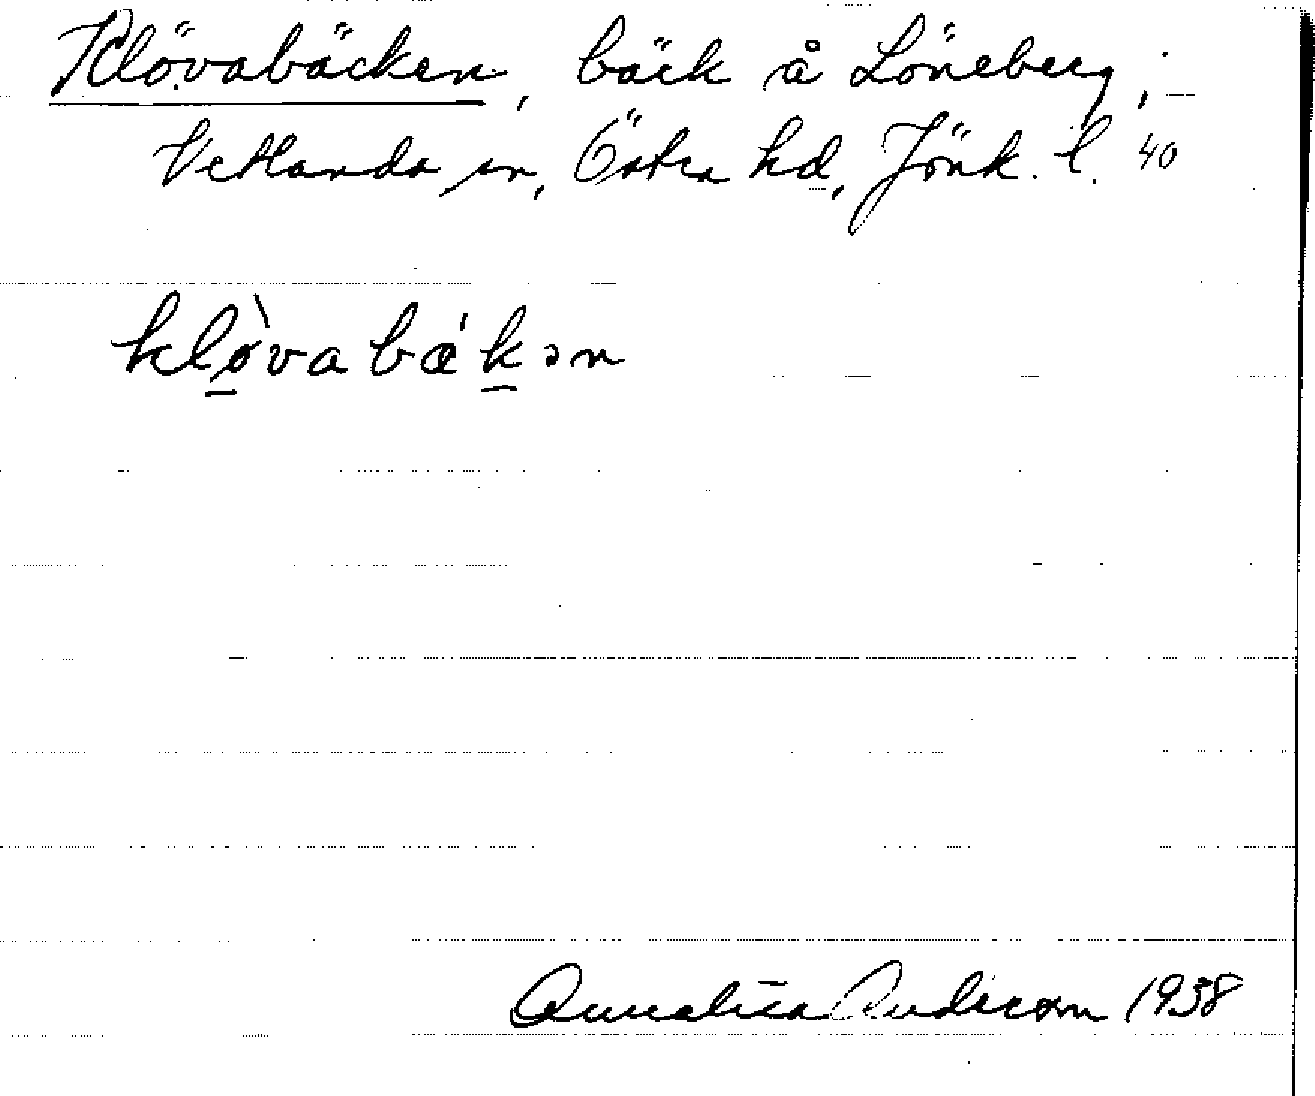 Klövabäcken, bäck å Löneberg, –
Vetlanda sn, Östra hd, Jönk. l. 40
klø̱̀vabǽḵən
Annalisa Anderson 1938